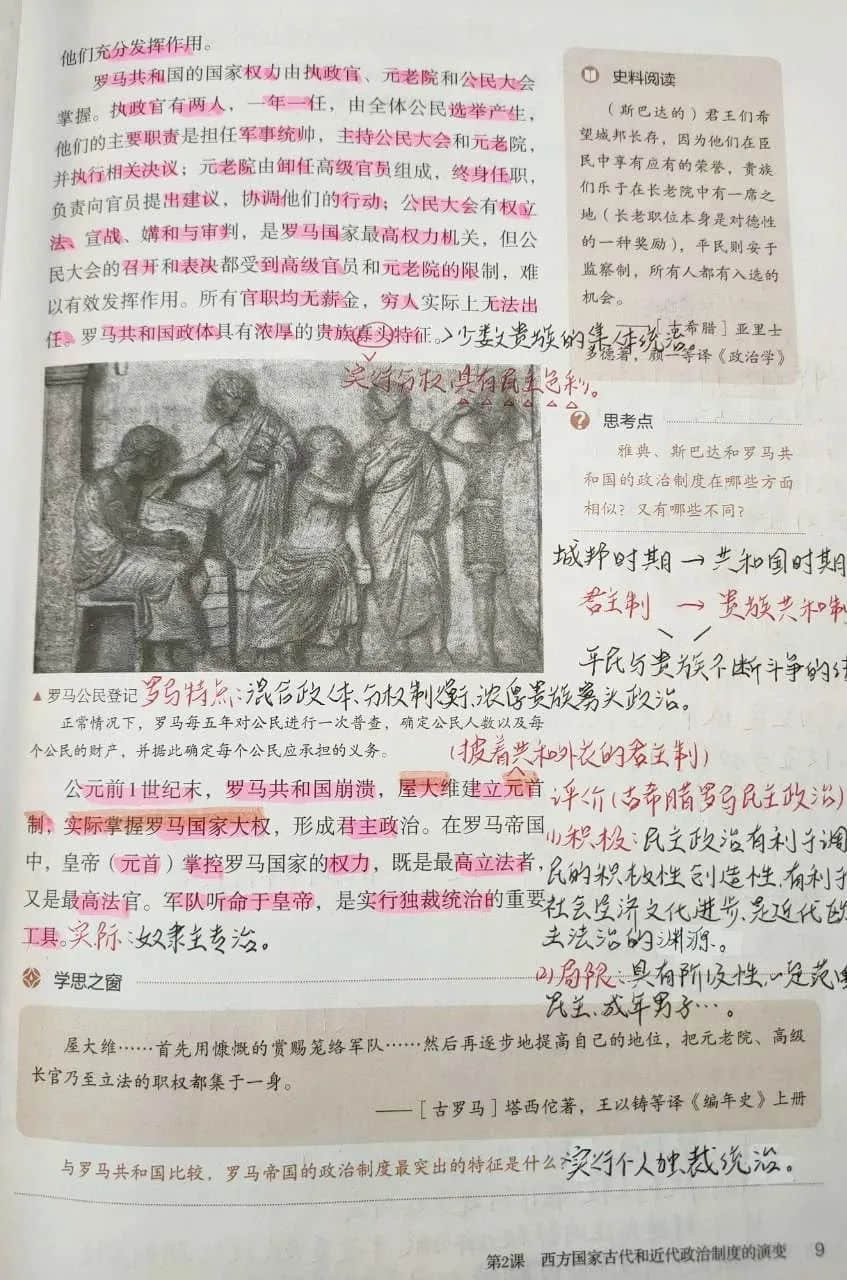 他们充分发挥作用。
罗马共和国的国家权力由执政官、元老院和公民大会
掌握。执政官有两人，一年一任，由全体公民选举产生，
他们的主要职责是担任军事统帅，主持公民大会和元老院，
并执行相关决议；元老院由卸任高级官员组成，终身任职，
负责向官员提出建议，协调他们的行动；公民大会有权立
法、宣战、媾和与审判，是罗马国家最高权力机关，但公
民大会的召开和表决都受到高级官员和元老院的限制，难
以有效发挥作用。所有官职均无薪金，穷人实际上无法出
任。罗马共和国政体具有浓厚的贵族寡头特征。
少数贵族的集体统治。
实行分权 具有民主色彩。
史料阅读
（斯巴达的）君王们希
望城邦长存，因为他们在臣
民中享有应有的荣誉，贵族
们乐于在长老院中有一席之
地（长老职位本身是对德性
的一种奖励），平民则安于
监察制，所有人都有入选的
机会。
——［古希腊］亚里士
多德著，颜一等译《政治学》
思考点
雅典、斯巴达和罗马共
和国的政治制度在哪些方面
相似？又有哪些不同？
城邦时期→共和国时期
君主制 → 贵族共和制
平民与贵族不断斗争的
▲罗马公民登记
罗马特点：混合政体、分权制衡、浓厚贵族寡头政治。
正常情况下，罗马每五年对公民进行一次普查，确定公民人数以及每
个公民的财产，并据此确定每个公民应承担的义务。
（披着共和外衣的君主制）
公元前1世纪末，罗马共和国崩溃，屋大维建立元首
制，实际掌握罗马国家大权，形成君主政治。在罗马帝国
中，皇帝（元首）掌控罗马国家的权力，既是最高立法者，
又是最高法官。军队听命于皇帝，是实行独裁统治的重要
工具。
实际：奴隶主专治。
评价（古希腊罗马民主政治）
(1)积极：民主政治有利于调
民的积极性创造性，有利于
社会经济文化进步，是近代
主法治的渊源。
(2)局限：具有阶级性，一定范围
民主、成年男子…。
学思之窗
屋大维……首先用慷慨的赏赐笼络军队……然后再逐步地提高自己的地位，把元老院、高级
长官乃至立法的职权都集于一身。
——［古罗马］塔西佗著，王以铸等译《编年史》上册
与罗马共和国比较，罗马帝国的政治制度最突出的特征是什么？
实行个人独裁统治。
第2课 西方国家古代和近代政治制度的演变 9